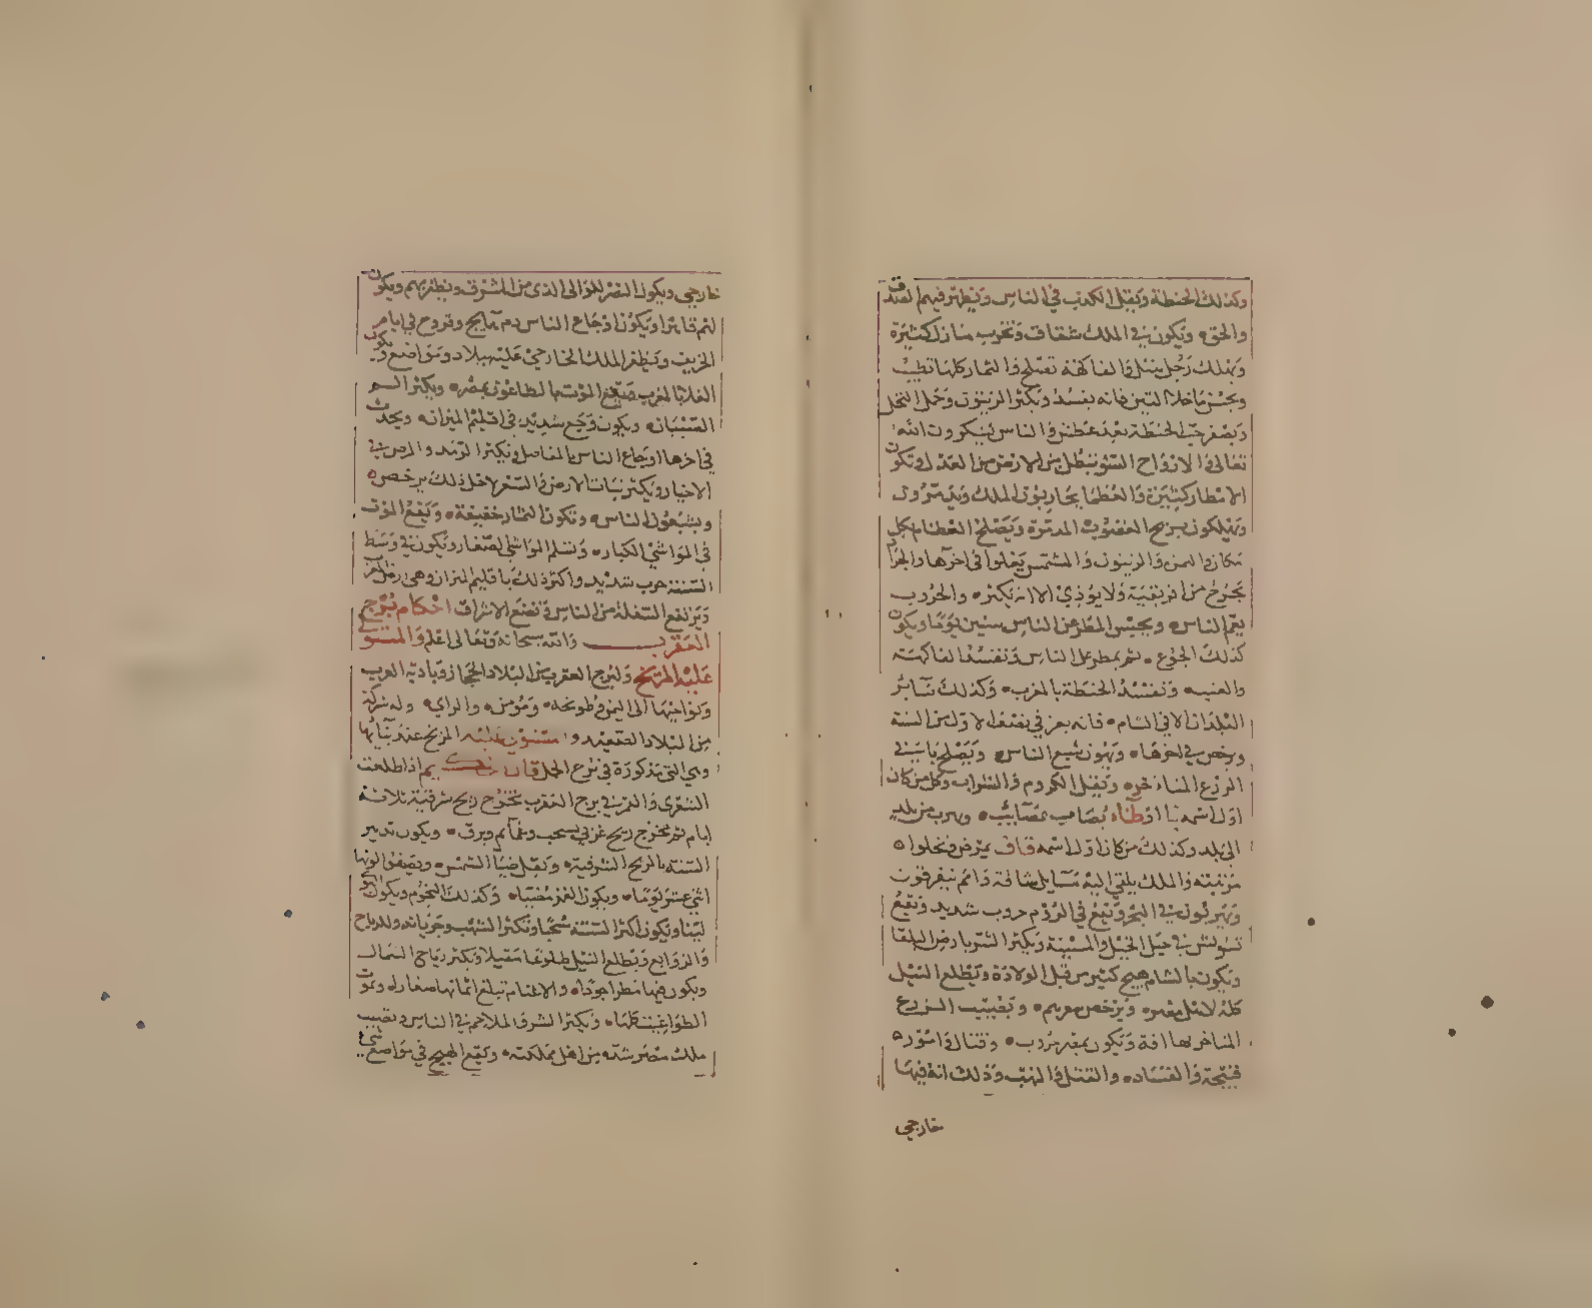 وكذلك الحنطة ويقل الكذب في الناس ويظهر فيهم الصدق
والحق ويكون في الملك شقاق وتخرب منازل كثيرة
ويهلك رجل بنبل والفاكهة تصلح والثمار كلها تطيب
ويحسن ماخلا التين فانه يفسد ويكثر الزيتون وحمل النخل
ويصفر حب الحنطة بعد عطش والناس يشكرون الله
تعالى والارواح السؤ تبطل من الارض من العدل وتكون
الامطار كثيرة والعظما يحاربون الملك
ويهلكون بريح العقارب المدمرة ويصلح الطعام بكل
مكان والسمن والزيتون والمشمش يغلوا في اخرها والجراد
يخرج من افريقية ولا يوذي الا انه يكثر والخروب
يعم الناس ويحبس المطر عن الناس ستين يوما ويكون
كذلك الجوع ثم يمطر على الناس وتفسد الفاكهة
والعنب وتفسد الحنطة بالمغرب وكذلك سائر
البلدان الا في الشام فانه يعز في نصف الاول من السنة
ويرخص في اخرها ويهون شبع الناس ويصلح
الزرع المتاخر ويقل الكروم والشراب وكل من كان
اول اسمه طاء يصاب بمصائب ويهرب من بلد
الى بلد وكذلك من كان اول اسمه قاف يمرض وتحلوا
مرتبته والملك يلقى اليه مسايل شاقة دائم يتفرقون
ويهربون في البحر ويقع في الروم حروب شديد ويقع
في جبل الخيل والسبية ويكثر الشر بارض البلقا
ويكون بالشام هيج كثير من قبل الولادة ويطلع النيل
كله لاهل مصر ويرخص سعرهم ويصيب الزرع
المتاخر بها افة ويكون بمصر حروب وقتال وامور
قبيحة والفساد والقتل والنهب وذلك انه فيها
خارجي
خارجي ويكون النصر للوالى الذى من المشرق ويظفر بهم ويكون
لهم قاهرا ويكون اوجاع الناس دم هايج وقروح في ايام
الخريف ويظفر الملك الخارجي عليه ببلاد ومواضع ويكون
الغلا بالمغرب ويقع الموت والطاعون بمصر ويكثر السم
الصبيان ويكون وجع شديد في اقليم الميزان ويحدث
في اخرها اوجاع الناس بالمفاصل ويكثر الرمد والمرض في
الاخيار ويكثر نبات الارض والسعر لاجل ذلك يرخص
ويشبعون الناس وتكون الثمار خفيفة ويقع الموت
في المواشي الكبار وتسلم المواشي الصغار ويكون في وسط
السنة حرب شديد واكثر ذلك باقليم الميزان وهي
ويرتفع السفلة من الناس وتضع الاشراف احكام برج
العقرب والله سبحانه وتعالى اعلم والمستولي
عليه المريخ ولبرج العقرب من البلاد الحجاز وبادية العرب
ونواحيها الى اليمن وطونجه وقومس والراي وله شركة
من البلاد الصعيد ومستولي عليه المريخ عند نباتها
وهي التي مذكورة في برج الحمل قال هرمس الحكيم اذا طلعت
الشعرى والقمر في برج العقرب يخرج ريح شرقية ثلاثة
ايام ثم يخرج ريح غربي بسحب وغمائم وبرق ويكون تدبير
السنة بالريح الشرقية ويقل ضياء الشمس ويصفر لونها
اثني عشر يوما ويكون القمر مضيا وكذلك النجوم ويكون الجو
لينا ويكون اكثر السنة سحبا وتكثر الشهب وجريانه والرياح
والزوابع ويطلع النيل طلوعا مقبلا ويكثر رياح الشمال
ويكون فيها مطرا جودا والاغنام تبلغ اثمانها صغار وتموت
الطواغيت كلها ويكثر الشر والملاحم في الناس وتصيب
ملك مصر شدة من اهل مملكته ويقع الهيج في مواضع شتى